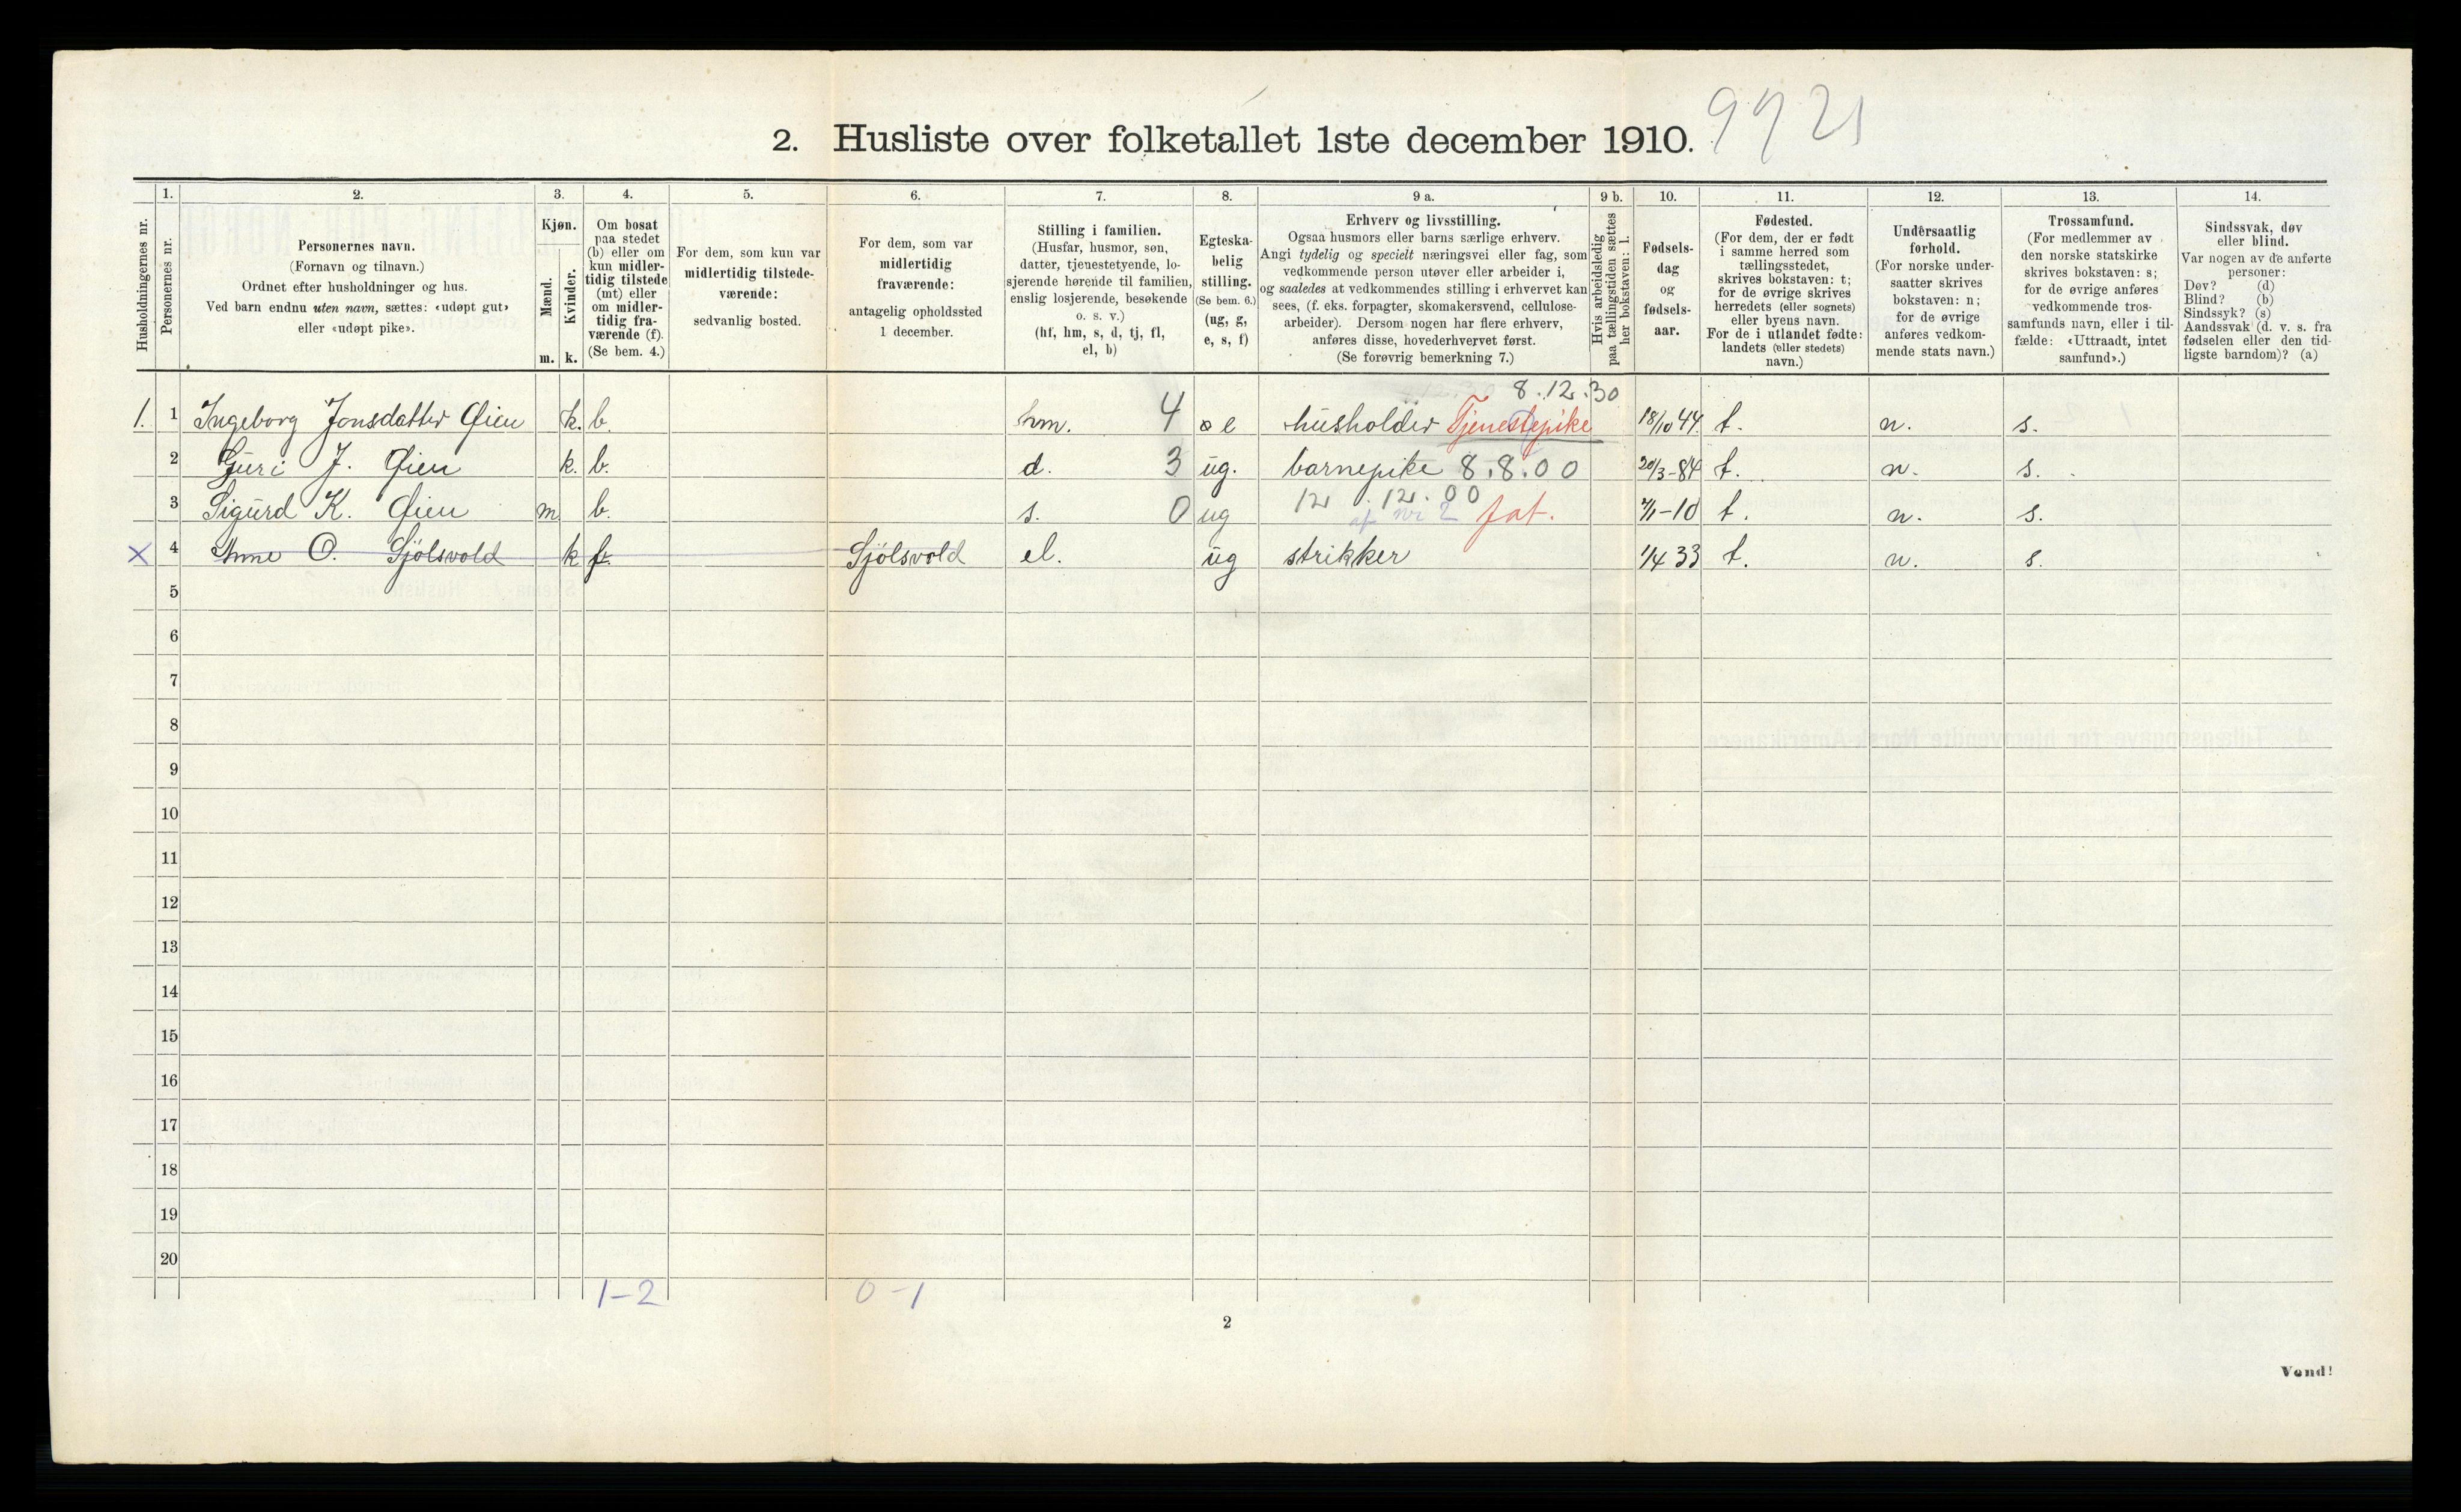 2. Husliste over folketallet 1ste december 1910.
1. 2. 3. 4. 5. 6. 7. 8. 9 a. 9 b. 10. 11. 12. 13. 14.
Husholdningernes nr.
Personernes nr.
Personernes navn.
(Fornavn og tilnavn.)
Ordnet efter husholdninger og hus.
Ved barn endnu uten navn, sættes: «udøpt gut»
eller «udøpt pike».
Kjøn.
Mænd.
Kvinder.
m. k.
Om bosat
paa stedet
(b) eller om
kun midler-
tidig tilstede
(mt) eller
om midler-
tidig fra-
værende (f).
(Se bem. 4.)
For dem, som kun var
midlertidig tilstede-
værende:
sedvanlig bosted.
For dem, som var
midlertidig
fraværende:
antagelig opholdssted
1 december.
Stilling i familien.
(Husfar, husmor, søn,
datter, tjenestetyende, lo-
sjerende hørende til familien,
enslig losjerende, besøkende
o. s. v.)
(hf, hm, s, d, tj, fl,
el, b)
Egteska-
belig
stilling.
(Se bem. 6.)
(ug, g,
e, s, f)
Erhverv og livsstilling.
Ogsaa husmors eller barns særlige erhverv.
Angi tydelig og specielt næringsvei eller fag, som
vedkommende person utøver eller arbeider i,
og saaledes at vedkommendes stilling i erhvervet kan
sees, (f. eks. forpagter, skomakersvend, cellulose-
arbeider). Dersom nogen har flere erhverv,
anføres disse, hovederhvervet først.
(Se forøvrig bemerkning 7.)
Hvis arbeidsledig
paa tællingstiden sættes
her bokstaven: l.
Fødsels-
dag
og
fødsels-
aar.
Fødested.
(For dem, der er født
i samme herred som
tællingsstedet,
skrives bokstaven: t;
for de øvrige skrives
herredets (eller sognets)
eller byens navn.
For de i utlandet fødte:
landets (eller stedets)
navn.)
Undersaatlig
forhold.
(For norske under-
saatter skrives
bokstaven: n;
for de øvrige
anføres vedkom-
mende stats navn.)
Trossamfund.
(For medlemmer av
den norske statskirke
skrives bokstaven: s;
for de øvrige anføres
vedkommende tros-
samfunds navn, eller i til-
fælde: «Uttraadt, intet
samfund».)
Sindssvak, døv
eller blind.
Var nogen av de anførte
personer:
Døv? (d)
Blind? (b)
Sindssyk? (s)
Aandssvak (d. v. s. fra
fødselen eller den tid-
ligste barndom)? (a)
8.12.30
1. 1 Ingeborg Jonsdatter Øien k. b. hm. 4 e husholder Tjenestepike 18/10 44 t. n. s.
2 Guri J. Øien k. b. d. 3 ug. barnepike 8.8.00 20/3-84 t. n. s.
12.12.00
3 Sigurd K. Øien m b. s. 0 ug af nr 2 fat. t. n. s.
X 4 Anne O. Sjölsvold k f. Sjölsvold el. ug strikker 1/4 33 t. n. s.
5
6
7
8
9
10
11
12
13
14
15
16
17
18
19
20
1-2 0-1
2
Vend!